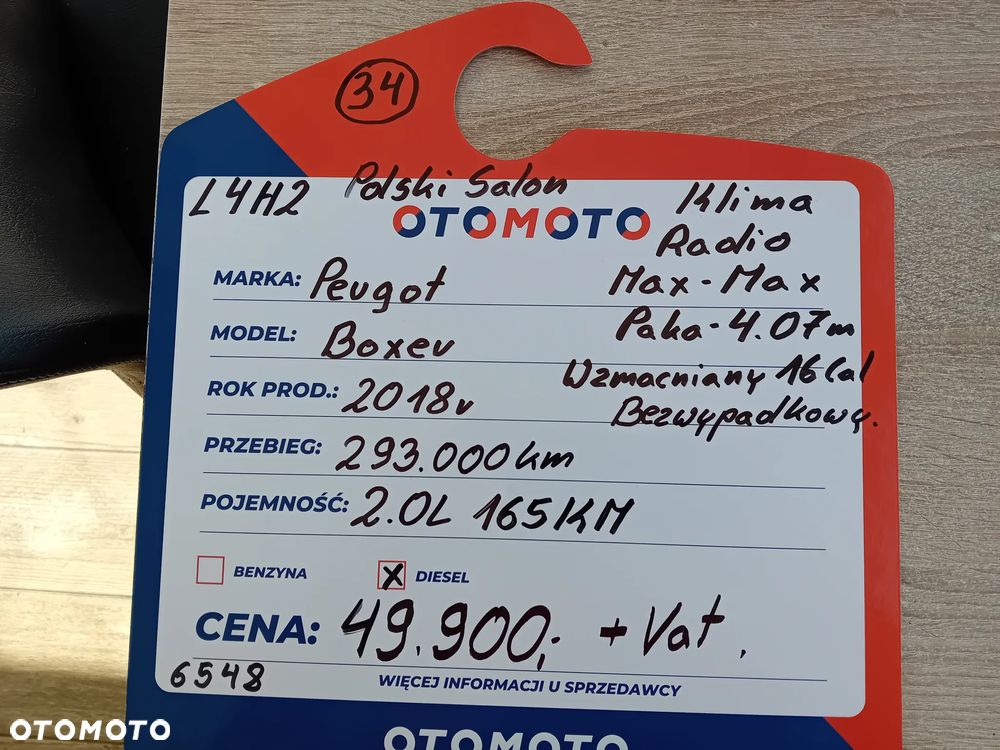 34
L4H2 Polski Salon Klima
OTOMOTO Radio
MARKA: Peugot Max-Max
MODEL: Boxer Paka-4.07m
ROK PROD.: 2018r Wzmacniany 16Cal
Bezwypadkowy.
PRZEBIEG: 293.000km
POJEMNOŚĆ: 2.0L 165KM
BENZYNA X DIESEL
CENA: 49.900,- + Vat.
6548 WIĘCEJ INFORMACJI U SPRZEDAWCY
OTOMOTO
OTOMOTO